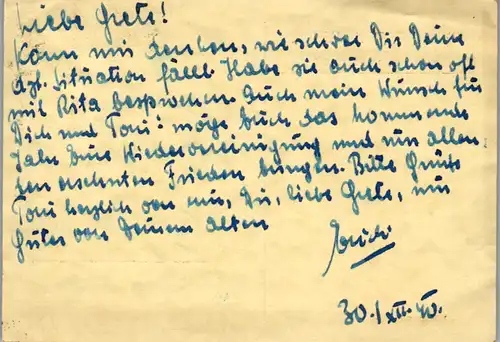 Liebe Grete!
Kann mir denken, wie schwer Dir Deine
dzt. Situation fällt. Habe sie auch schon oft
mit Rita besprochen. Auch mein Wunsch für
Dich und Toni: möge Euch das kommende
Jahr Eure Wiedervereinigung und uns allen
den ersehnten Frieden bringen. Bitte Grüße
Toni herzlich von mir, Dir, liebe Grete, nur
Gutes von Deinem alten
Erich
30./XII.40.